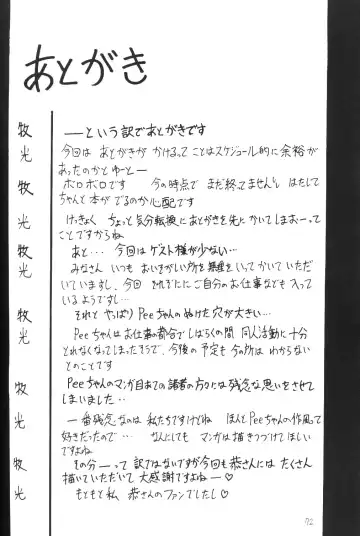 あとがき
牧 ──という訳であとがきです
光 今回は あとがきが かけるって ことはスケジュール的に余裕が
あったのかとゆーと──
牧 ボロボロです 今の時点で まだ終ってません はたして
ちゃんと本がでるのか心配です
光 けっきょく ちょっと気分転換にあとがきを先にかいてしまおーって
ことですからね
牧 あと… 今回はゲスト様が少ない…
光 みなさん いつも おいそがしい所を無理をいってかいていただ
いていますし、今回 それぞれにご自分のお仕事なども入って
いるようですし…
牧 それと やっぱり Peeちゃんのぬけた穴が大きい…
光 Peeちゃんはお仕事の都合でしばらくの間 同人活動に十分
とれなくなってしまったそうで、今後の予定も 今の所は わからない
とのことです
牧 Peeちゃんのマンガ目あての読者の方々には残念な思いをさせて
しまいました…
光 一番残念なのは私たちですけどね ほんとPeeちゃんの作風って
好きだったので… なんにしても マンガは描きつづけてほしい
ですよね
牧 その分──って 訳ではないですが今回も恭さんには たくさん
描いていただいて 大感謝ですよね♡
光 もともと私 恭さんのファンでしたし♡
72